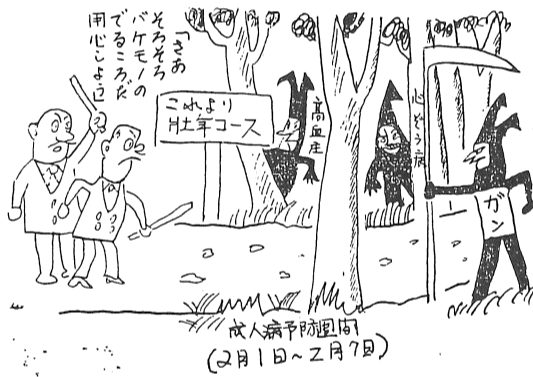 「さあ
そろそろ
バケモノの
でるころだ
用心しよう」
これより
壮年コース
高血圧
心ぞう病
ガン
成人病予防週間
(2月1日~2月7日)